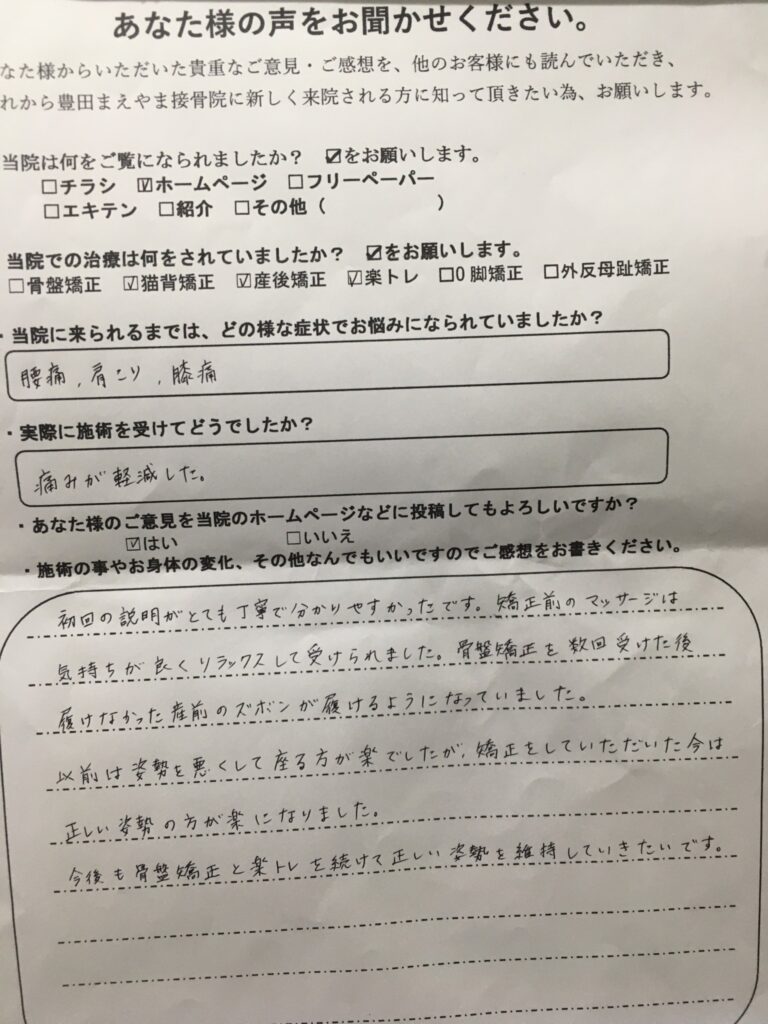 あなた様の声をお聞かせください。
なた様からいただいた貴重なご意見・ご感想を、他のお客様にも読んでいただき、
れから豊田まえやま接骨院に新しく来院される方に知って頂きたい為、お願いします。
当院は何をご覧になられましたか？ ☑をお願いします。
□チラシ ☑ホームページ □フリーペーパー
□エキテン □紹介 □その他（ ）
当院での治療は何をされていましたか？ ☑をお願いします。
□骨盤矯正 ☑猫背矯正 ☑産後矯正 ☑楽トレ □O脚矯正 □外反母趾矯正
・当院に来られるまでは、どの様な症状でお悩みになられていましたか？
腰痛，肩こり，膝痛
・実際に施術を受けてどうでしたか？
痛みが軽減した。
・あなた様のご意見を当院のホームページなどに投稿してもよろしいですか？
☑はい □いいえ
・施術の事やお身体の変化、その他なんでもいいですのでご感想をお書きください。
初回の説明がとても丁寧で分かりやすかったです。矯正前のマッサージは
気持ちが良くリラックスして受けられました。骨盤矯正を数回受けた後
履けなかった産前のズボンが履けるようになっていました。
以前は姿勢を悪くして座る方が楽でしたが、矯正をしていただいた今は
正しい姿勢の方が楽になりました。
今後も骨盤矯正と楽トレを続けて正しい姿勢を維持していきたいです。